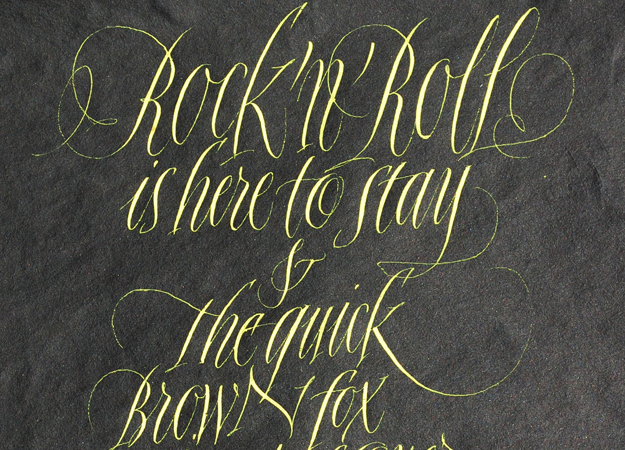 Rock 'n' Roll
is here to stay
&
the quick
BroWN fox